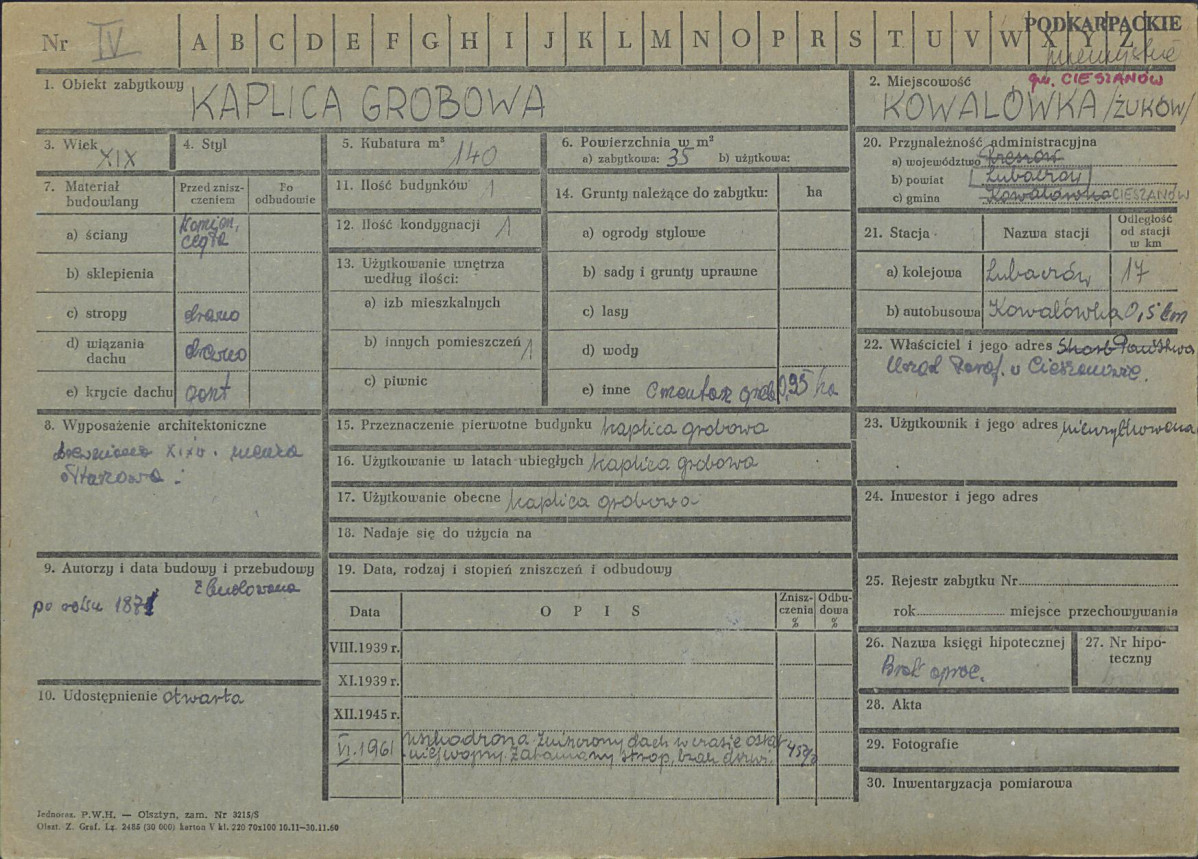 Nr IV A B C D E F G H I J K L M N O P R S T U V W X Y Z
PODKARPACKIE
gm. CIESZANÓW
1. Obiekt zabytkowy KAPLICA GROBOWA
2. Miejscowość
KOWALÓWKA /ŻUKÓW/
3. Wiek XIX
4. Styl
5. Kubatura m³ 140
6. Powierzchnia w m²
a) zabytkowa: 35 b) użytkowa:
20. Przynależność administracyjna
a) województwo Rzeszów
b) powiat Lubaczów
c) gmina Kowalówka CIESZANÓW
7. Materiał budowlany
Przed zniszczeniem
Po odbudowie
a) ściany kamień, cegła
b) sklepienia
c) stropy drewno
d) wiązania dachu drewno
e) krycie dachu gont
11. Ilość budynków 1
12. Ilość kondygnacji 1
13. Użytkowanie wnętrza
według ilości:
a) izb mieszkalnych
b) innych pomieszczeń 1
c) piwnic
14. Grunty należące do zabytku: ha
a) ogrody stylowe
b) sady i grunty uprawne
c) lasy
d) wody
e) inne Cmentarz 0,95 ha
21. Stacja Nazwa stacji Odległość od stacji w km
a) kolejowa Lubaczów 17
b) autobusowa Kowalówka 0,5 km
22. Właściciel i jego adres Skarb Państwa
Urząd Paraf. w Cieszanowie.
8. Wyposażenie architektoniczne
XIXw. mensa
ołtarzowa.
15. Przeznaczenie pierwotne budynku kaplica grobowa
16. Użytkowanie w latach ubiegłych kaplica grobowa
17. Użytkowanie obecne kaplica grobowa
18. Nadaje się do użycia na
23. Użytkownik i jego adres nieużytkowana
24. Inwestor i jego adres
9. Autorzy i data budowy i przebudowy
Zbudowana
po roku 1871
10. Udostępnienie otwarta
19. Data, rodzaj i stopień zniszczeń i odbudowy
Data OPIS Zniszczenia % Odbudowa %
VIII.1939 r.
XI.1939 r.
XII.1945 r.
VI.1961 uszkodzona zniszczony dach w czasie ostat-
niej wojny. Załamany strop, brak drzwi. 45%
25. Rejestr zabytku Nr
rok miejsce przechowywania
26. Nazwa księgi hipotecznej
Brak oprac.
27. Nr hipoteczny
28. Akta
29. Fotografie
30. Inwentaryzacja pomiarowa
Jednoraz. P.W.H. — Olsztyn, zam. Nr 3215/S
Olszt. Z. Graf. Lz. 2485 (30 000) karton V kl. 220 70x100 10.11—30.11.60